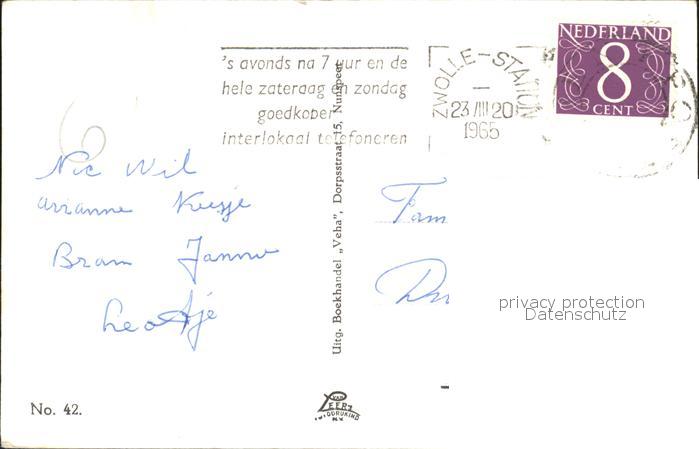 's avonds na 7 uur en de
hele zaterdag en zondag
goedkoper
interlokaal telefoneren
ZWOLLE-STATION
23 III 20
1965
NEDERLAND
8
CENT
Nic Wil
Arianne Keesje
Bram Janny
Leo Atje
Fam
Uitg. Boekhandel „Veha”, Dorpsstraat 15, Nunspeet
privacy protection
Datenschutz
No. 42.
VAN
LEER'S
N.V.